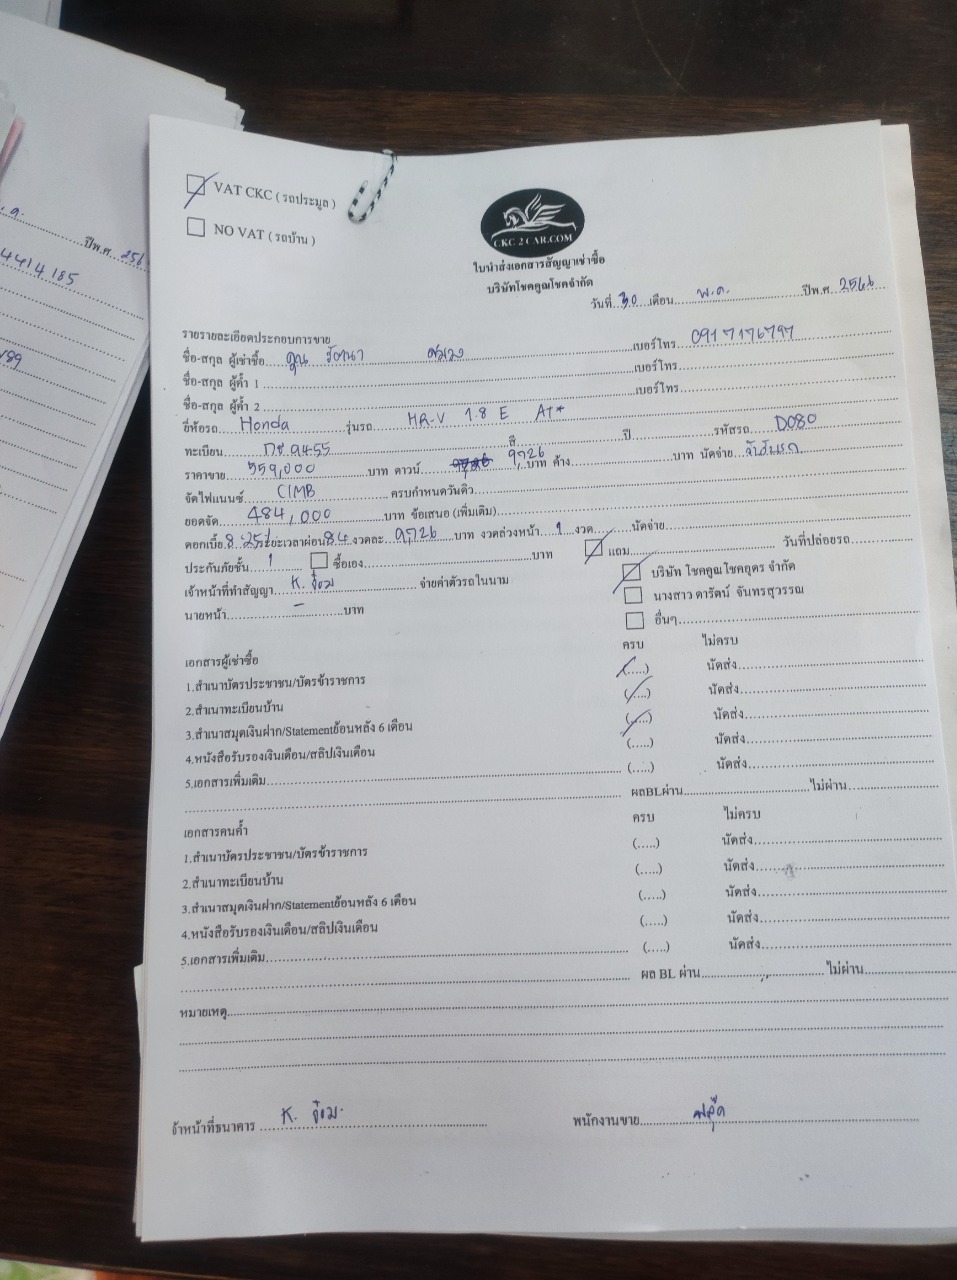 VAT CKC ( รถประมูล )
NO VAT ( รถบ้าน )
CKC 2 CAR.COM
ใบนำส่งเอกสารสัญญาเช่าซื้อ
บริษัทโชคคูณโชคจำกัด
วันที่ 30 เดือน พ.ค. ปีพ.ศ 2566
รายรายละเอียดประกอบการขาย
ชื่อ-สกุล ผู้เช่าซื้อ คุณ รัตนา เบอร์โทร 0917176797
ชื่อ-สกุล ผู้ค้ำ 1 เบอร์โทร
ชื่อ-สกุล ผู้ค้ำ 2 เบอร์โทร
ยี่ห้อรถ Honda รุ่นรถ HR-V 1.8 E AT*
ทะเบียน 9455 สี ปี รหัสรถ D080
ราคาขาย 559,000 บาท ดาวน์ 9,726 บาท ค้าง บาท นัดจ่าย
จัดไฟแนนซ์ CIMB ครบกำหนดวันดิว
ยอดจัด 484,000 บาท ข้อเสนอ (เพิ่มเติม)
ดอกเบี้ย 8.25% ระยะเวลาผ่อน 84 งวดละ 9,726 บาท งวดล่วงหน้า 1 งวด นัดจ่าย
ประกันภัยชั้น 1 ซื้อเอง บาท แถม วันที่ปล่อยรถ
เจ้าหน้าที่ทำสัญญา K. จ่ายค่าตัวรถในนาม บริษัท โชคคูณโชคอุดร จำกัด
นางสาว ดารัตน์ จันทรสุวรรณ
นายหน้า - บาท อื่นๆ
เอกสารผู้เช่าซื้อ ครบ ไม่ครบ
1.สำเนาบัตรประชาชน/บัตรข้าราชการ (.....) นัดส่ง
2.สำเนาทะเบียนบ้าน (.....) นัดส่ง
3.สำเนาสมุดเงินฝาก/Statementย้อนหลัง 6 เดือน (.....) นัดส่ง
4.หนังสือรับรองเงินเดือน/สลิปเงินเดือน (.....) นัดส่ง
5.เอกสารเพิ่มเติม (.....) นัดส่ง
ผลBLผ่าน ไม่ผ่าน
เอกสารคนค้ำ ครบ ไม่ครบ
1.สำเนาบัตรประชาชน/บัตรข้าราชการ (.....) นัดส่ง
2.สำเนาทะเบียนบ้าน (.....) นัดส่ง
3.สำเนาสมุดเงินฝาก/Statementย้อนหลัง 6 เดือน (.....) นัดส่ง
4.หนังสือรับรองเงินเดือน/สลิปเงินเดือน (.....) นัดส่ง
5.เอกสารเพิ่มเติม (.....) นัดส่ง
ผล BL ผ่าน ไม่ผ่าน
หมายเหตุ
จ้าหน้าที่ธนาคาร K. พนักงานขาย
ปีพ.ศ. 256
4414 185